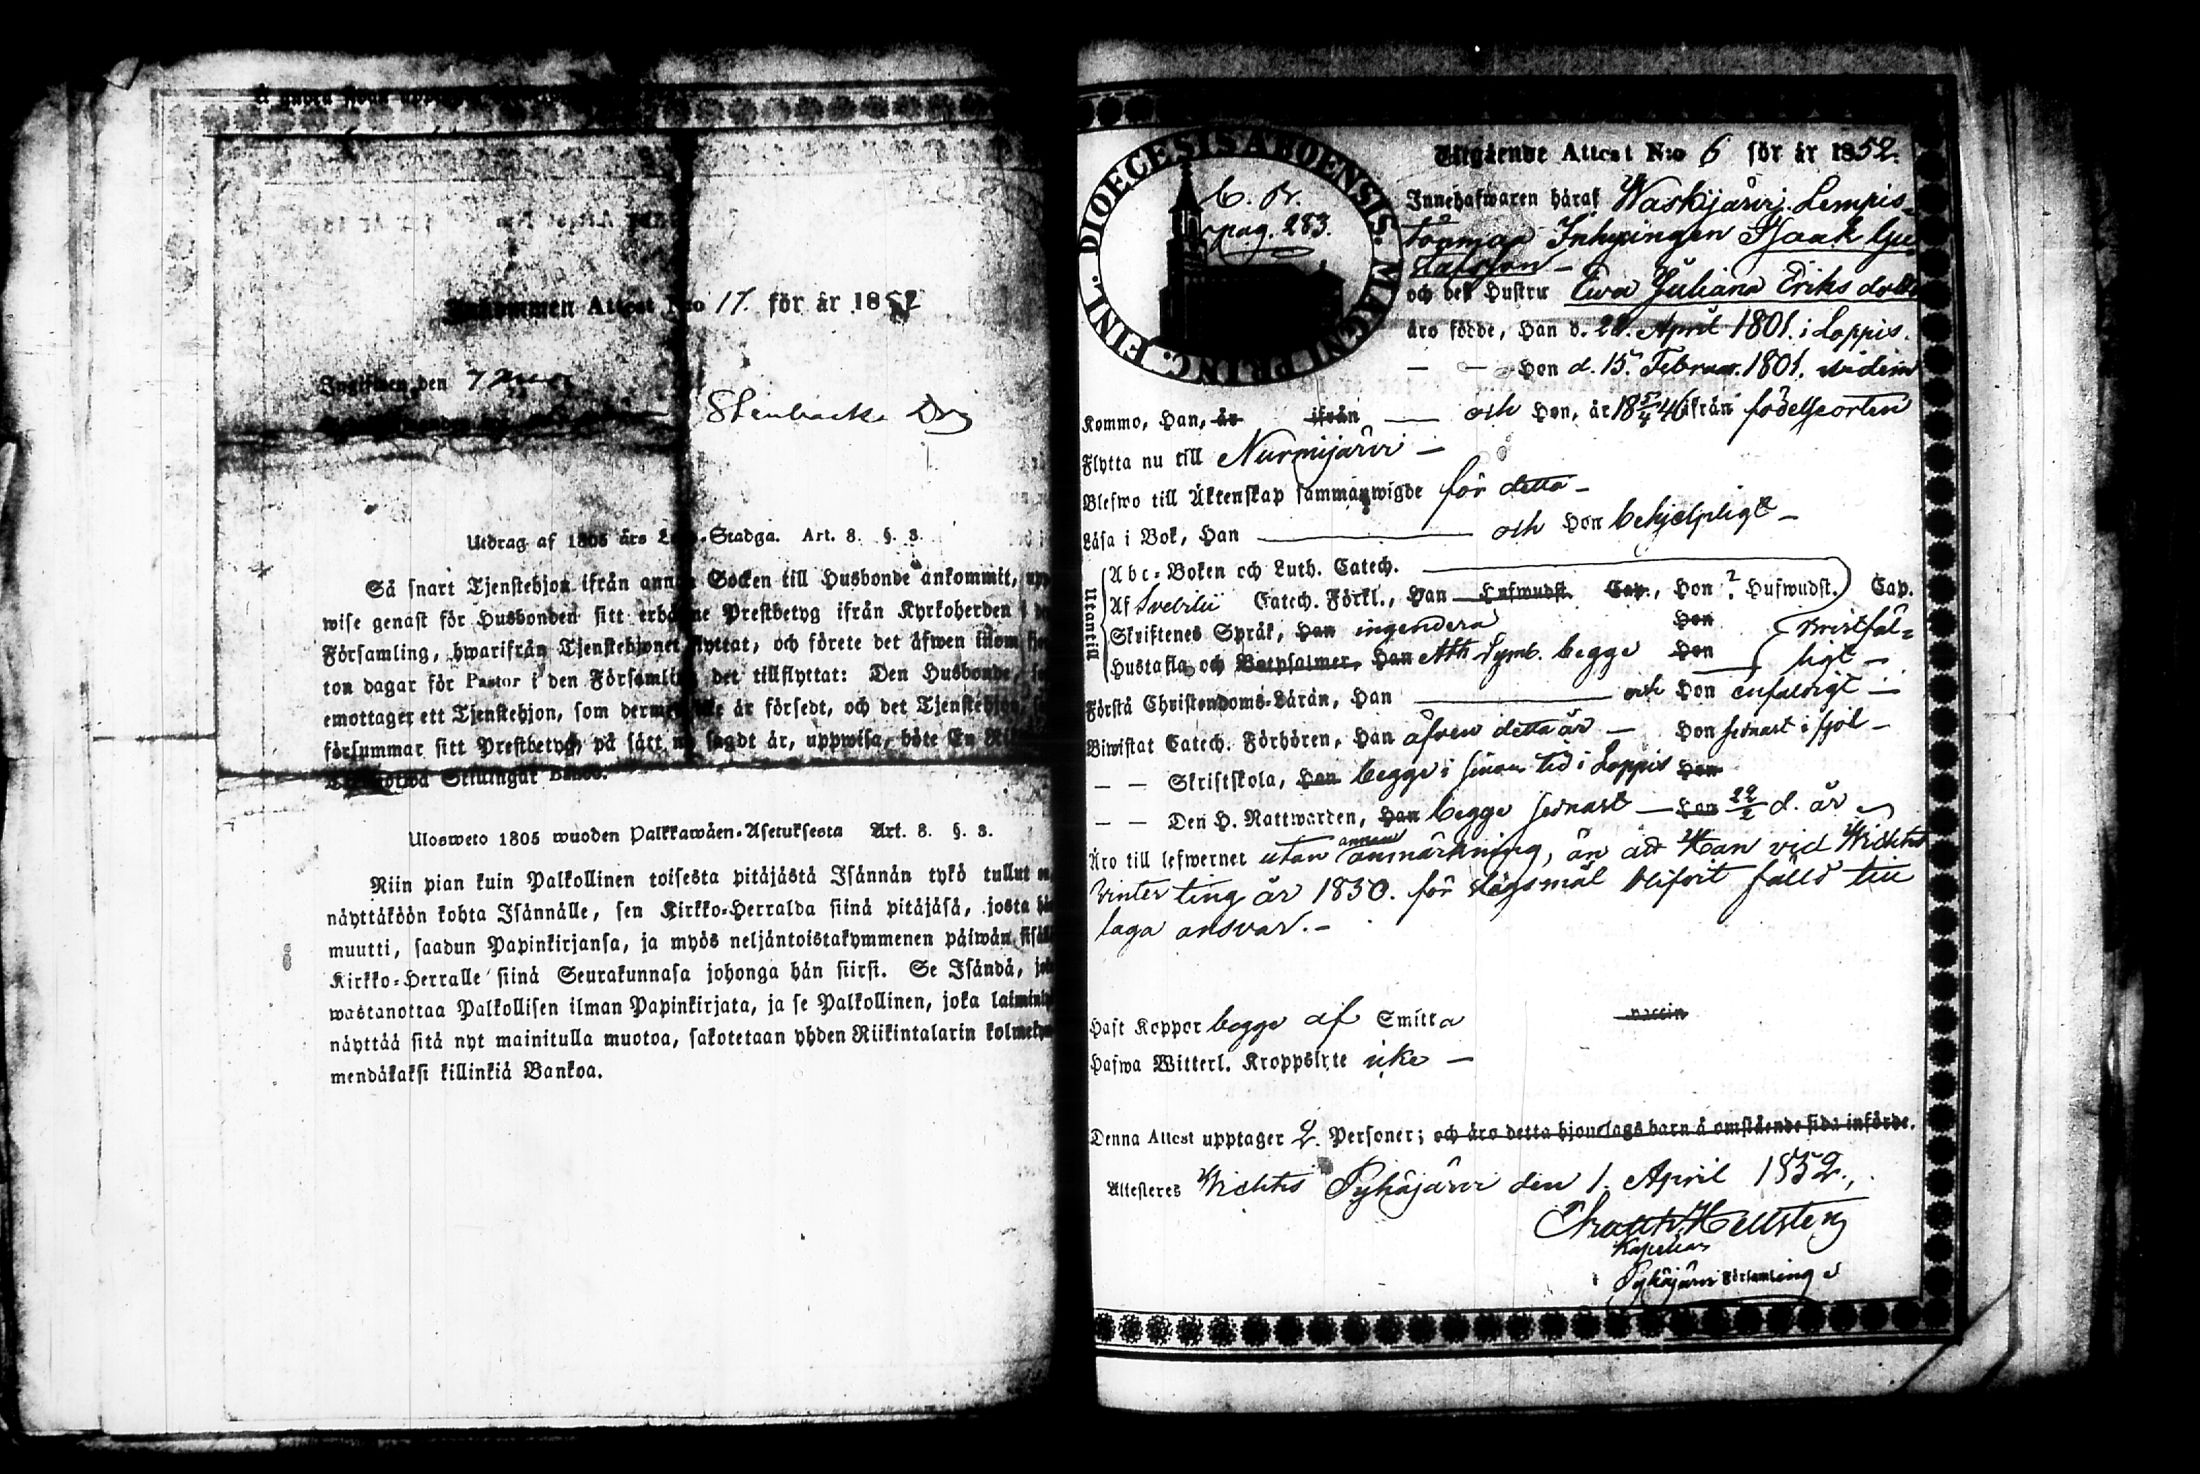 Inkommen Attest N:o 17. för år 1852
Ingifwen den 7
Stenback
Utdrag af 1805 års Lego-Stadga. Art. 8. §. 3.
Så snart Tjenstehjon ifrån annan Socken till Husbonde ankommit,
wise genast för Husbonden sitt erhållne Prestbetyg ifrån Kyrkoherden i
Församling, hwarifrån Tjenstehjonet flyttat, och förete det äfwen inom
ton dagar för Pastor i den Församling det tillflyttat: Den Husbonde,
emottager ett Tjenstehjon, som dermed icke är försedt, och det Tjenstehjon,
försummar sitt Prestbetyg, på sätt nu sagdt är, uppwisa, böte En
Skillingar Banco.
Ulosweto 1805 wuoden Palkkawäen-Asetuksesta Art. 8. §. 3.
Niin pian kuin Palkollinen toisesta pitäjästä Isännän tykö tullut on,
näyttäköön kohta Isännälle, sen Kirkko-Herralda siinä pitäjäsä, josta hän
muutti, saadun Papinkirjansa, ja myös neljäntoistakymmenen päiwän sisällä
Kirkko-Herralle siinä Seurakunnasa johonga hän siirsi. Se Isändä, joka
wastanottaa Palkollisen ilman Papinkirjata, ja se Palkollinen, joka laiminlyö
näyttää sitä nyt mainitulla muotoa, sakotetaan yhden Riikintalarin kolmekym-
mendäkaksi killinkiä Bankoa.
DIOECESIS ABOENSIS. MAGNI PRINC. FINL.
C. B.
pag. 283.
Utgående Attest N:o 6 för år 1852.
Innehafwaren häraf Waskijärvi. Lempis-
Inhysingen Isaak Gu-
stafsson –
och dess Hustru Ewa Juliana Eriksdotter
äro födde, Han d. 22. April 1801. i Loppis.
– – Hon d. 15. Februar. 1801. ibidem
Kommo, Han, är ifrån — och Hon, år 18 5/4 46 ifrån födelseorten
Flytta nu till Nurmijärvi –
Blefwo till Äktenskap sammanwigde för detta –
Läsa i Bok, Han — och Hon behjelpligt –
Utantill
Abc-Boken och Luth. Catech. —
Af Svebilii Catech. Förkl., Han Hufwudst. Cap., Hon ? Hufwudst. Cap.
Skriftenes Språk, Han ingendera Hon bristfäl-
Hustafla och Botpsalmer, Han Ath. Symb. begge Hon ligt –
Förstå Christendoms-Läran, Han — och Hon enfaldigt –
Biwistat Catech. Förhören, Han äfven detta år – Hon sednast i fjol –
– – Skriftskola, Han begge i sinom tid i Loppis Hon
– – Den H. Nattwarden, Han begge sednast – Hon 22/2 d. år
Äro till lefwernet utan annan anmärkning, än att Han vid Wichtis
Vinter ting år 1850. för lägsmål blifvit fälld till
laga ansvar. –
Haft Koppor begge af Smitta vaccin
Hafwa Witterl. Kroppslyte icke –
Denna Attest upptager 2. Personer; och äro detta hjonelags barn å omstående sida införde.
Attesteres Wichtis Pyhäjärvi den 1. April 1852.
Hellsten
Kapellan
i Pyhäjärvi Församling